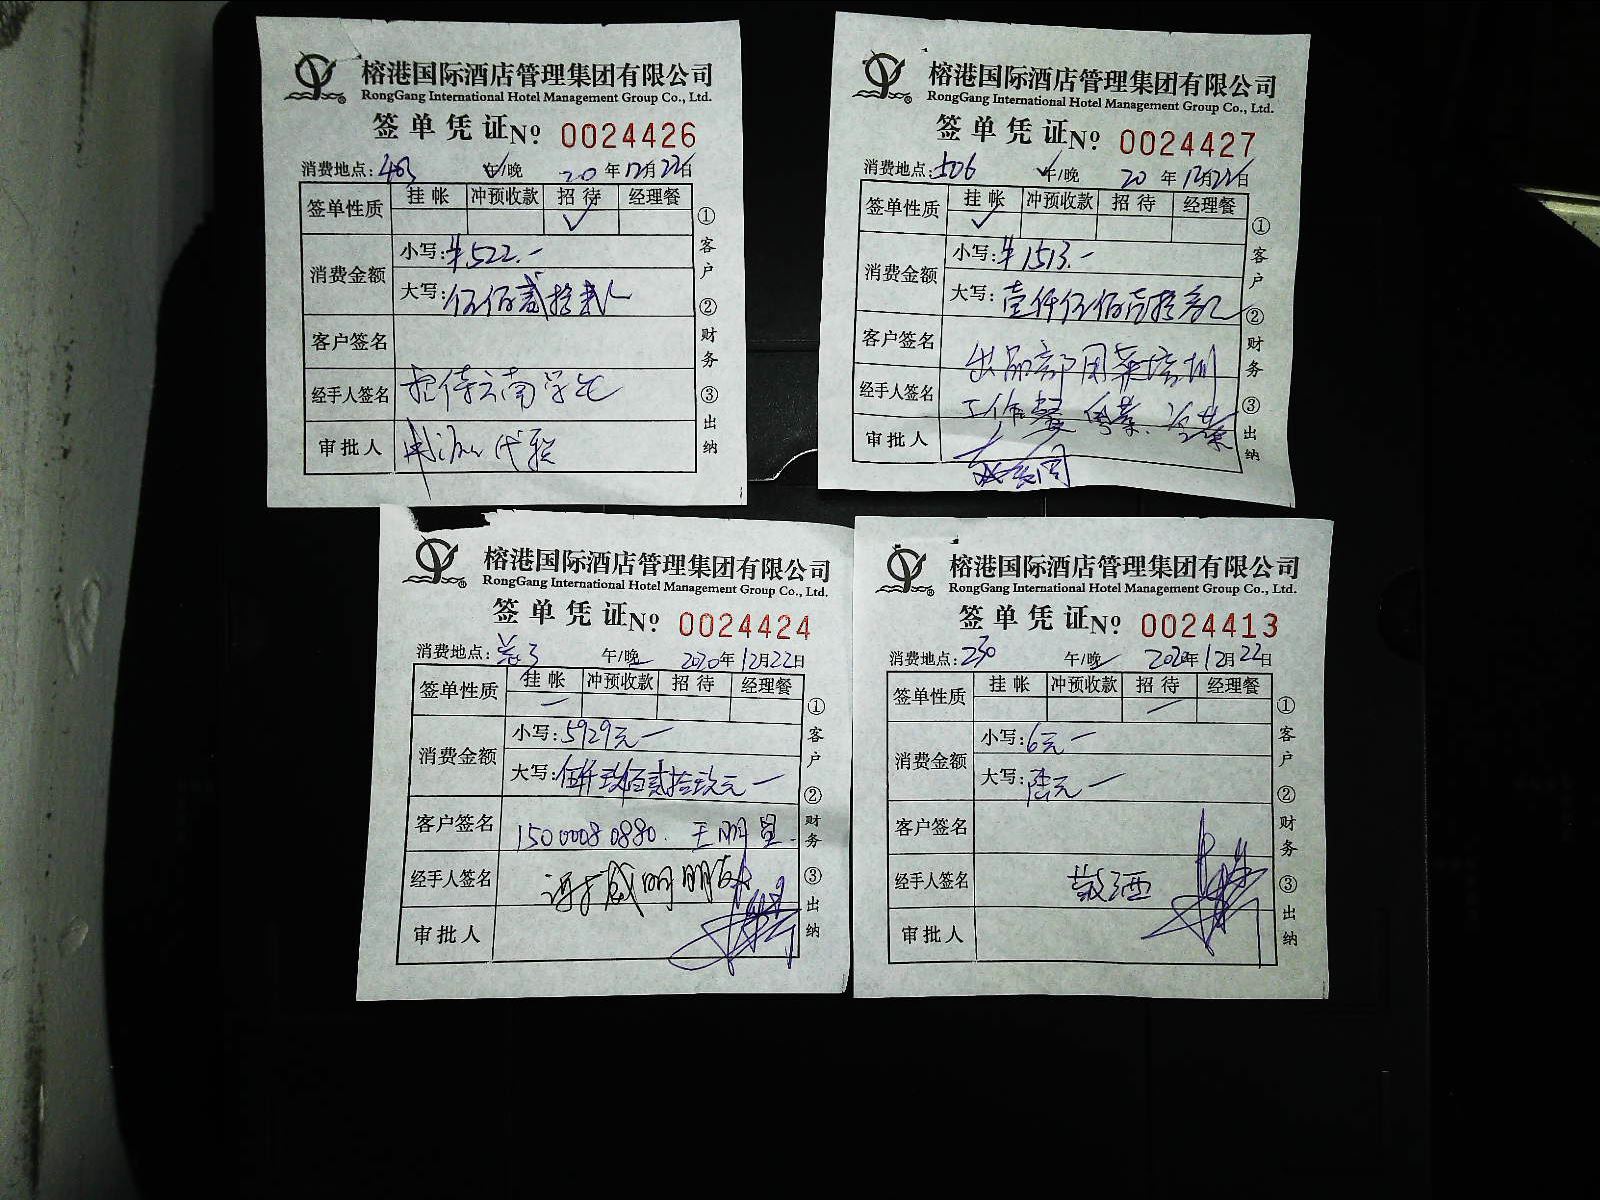 榕港国际酒店管理集团有限公司
RongGang International Hotel Management Group Co., Ltd.
签单凭证 Nº 0024426
消费地点: 午/晚 20年12月22日
签单性质 挂帐 冲预收款 招待 经理餐
✓
消费金额
小写: ¥522.-
大写: 伍佰贰拾贰
客户签名
经手人签名 招待云南学生
审批人
①客户 ②财务 ③出纳
榕港国际酒店管理集团有限公司
RongGang International Hotel Management Group Co., Ltd.
签单凭证 Nº 0024427
消费地点: 506 午/晚 20年12月22日
签单性质 挂帐 冲预收款 招待 经理餐
✓
消费金额
小写: ¥1513.-
大写: 壹仟伍佰壹拾叁
客户签名 出品部用菜培训
经手人签名 工作餐
审批人
①客户 ②财务 ③出纳
榕港国际酒店管理集团有限公司
RongGang International Hotel Management Group Co., Ltd.
签单凭证 Nº 0024424
消费地点: 午/晚 2020年12月22日
签单性质 挂帐 冲预收款 招待 经理餐
消费金额
小写: 5929元一
大写: 伍仟玖佰贰拾玖元一
客户签名 15000080880.
经手人签名
审批人
①客户 ②财务 ③出纳
榕港国际酒店管理集团有限公司
RongGang International Hotel Management Group Co., Ltd.
签单凭证 Nº 0024413
消费地点: 230 午/晚 2020年12月22日
签单性质 挂帐 冲预收款 招待 经理餐
消费金额
小写: 6元一
大写: 陆元一
客户签名
经手人签名 敬酒
审批人
①客户 ②财务 ③出纳